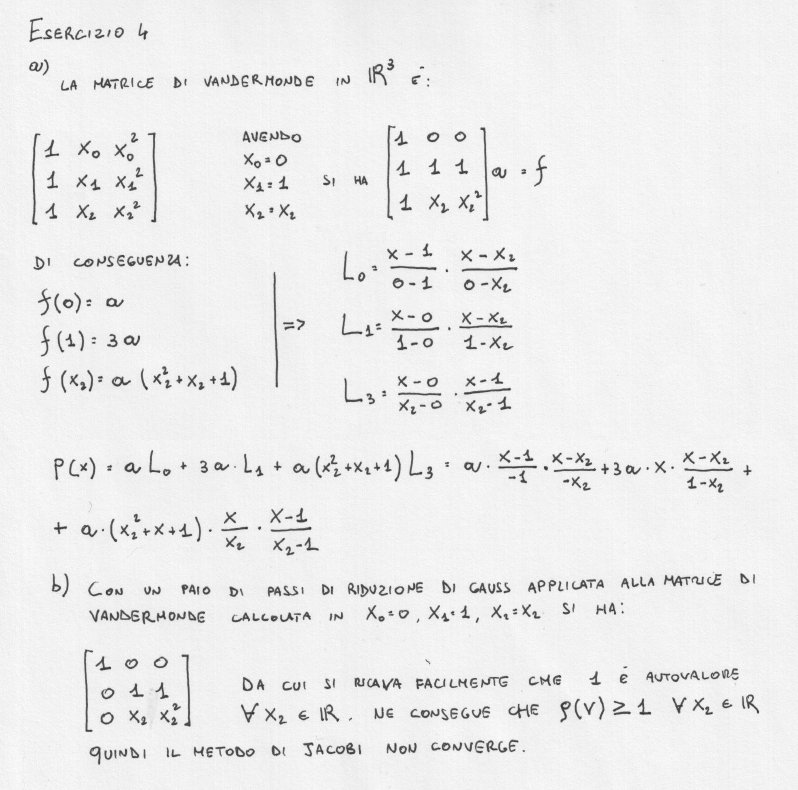 ESERCIZIO 4
a)
LA MATRICE DI VANDERMONDE IN ℝ³ È:
[1 x₀ x₀²
1 x₁ x₁²
1 x₂ x₂²]
AVENDO
x₀=0
x₁=1
x₂=x₂
SI HA
[1 0 0
1 1 1
1 x₂ x₂²] a = f
DI CONSEGUENZA:
f(0)= a
f(1)= 3a
f(x₂)= a (x₂²+x₂+1)
=>
L₀= (x-1)/(0-1) · (x-x₂)/(0-x₂)
L₁= (x-0)/(1-0) · (x-x₂)/(1-x₂)
L₃= (x-0)/(x₂-0) · (x-1)/(x₂-1)
P(x) = a L₀ + 3a·L₁ + a(x₂²+x₂+1) L₃ = a · (x-1)/(-1) · (x-x₂)/(-x₂) + 3a·x· (x-x₂)/(1-x₂) +
+ a·(x₂²+x+1) · x/x₂ · (x-1)/(x₂-1)
b) CON UN PAIO DI PASSI DI RIDUZIONE DI GAUSS APPLICATA ALLA MATRICE DI
VANDERMONDE CALCOLATA IN x₀=0, x₁=1, x₂=x₂ SI HA:
[1 0 0
0 1 1
0 x₂ x₂²]
DA CUI SI RICAVA FACILMENTE CHE 1 È AUTOVALORE
∀ x₂ ∈ ℝ. NE CONSEGUE CHE ρ(V) ≥ 1 ∀ x₂ ∈ ℝ
QUINDI IL METODO DI JACOBI NON CONVERGE.